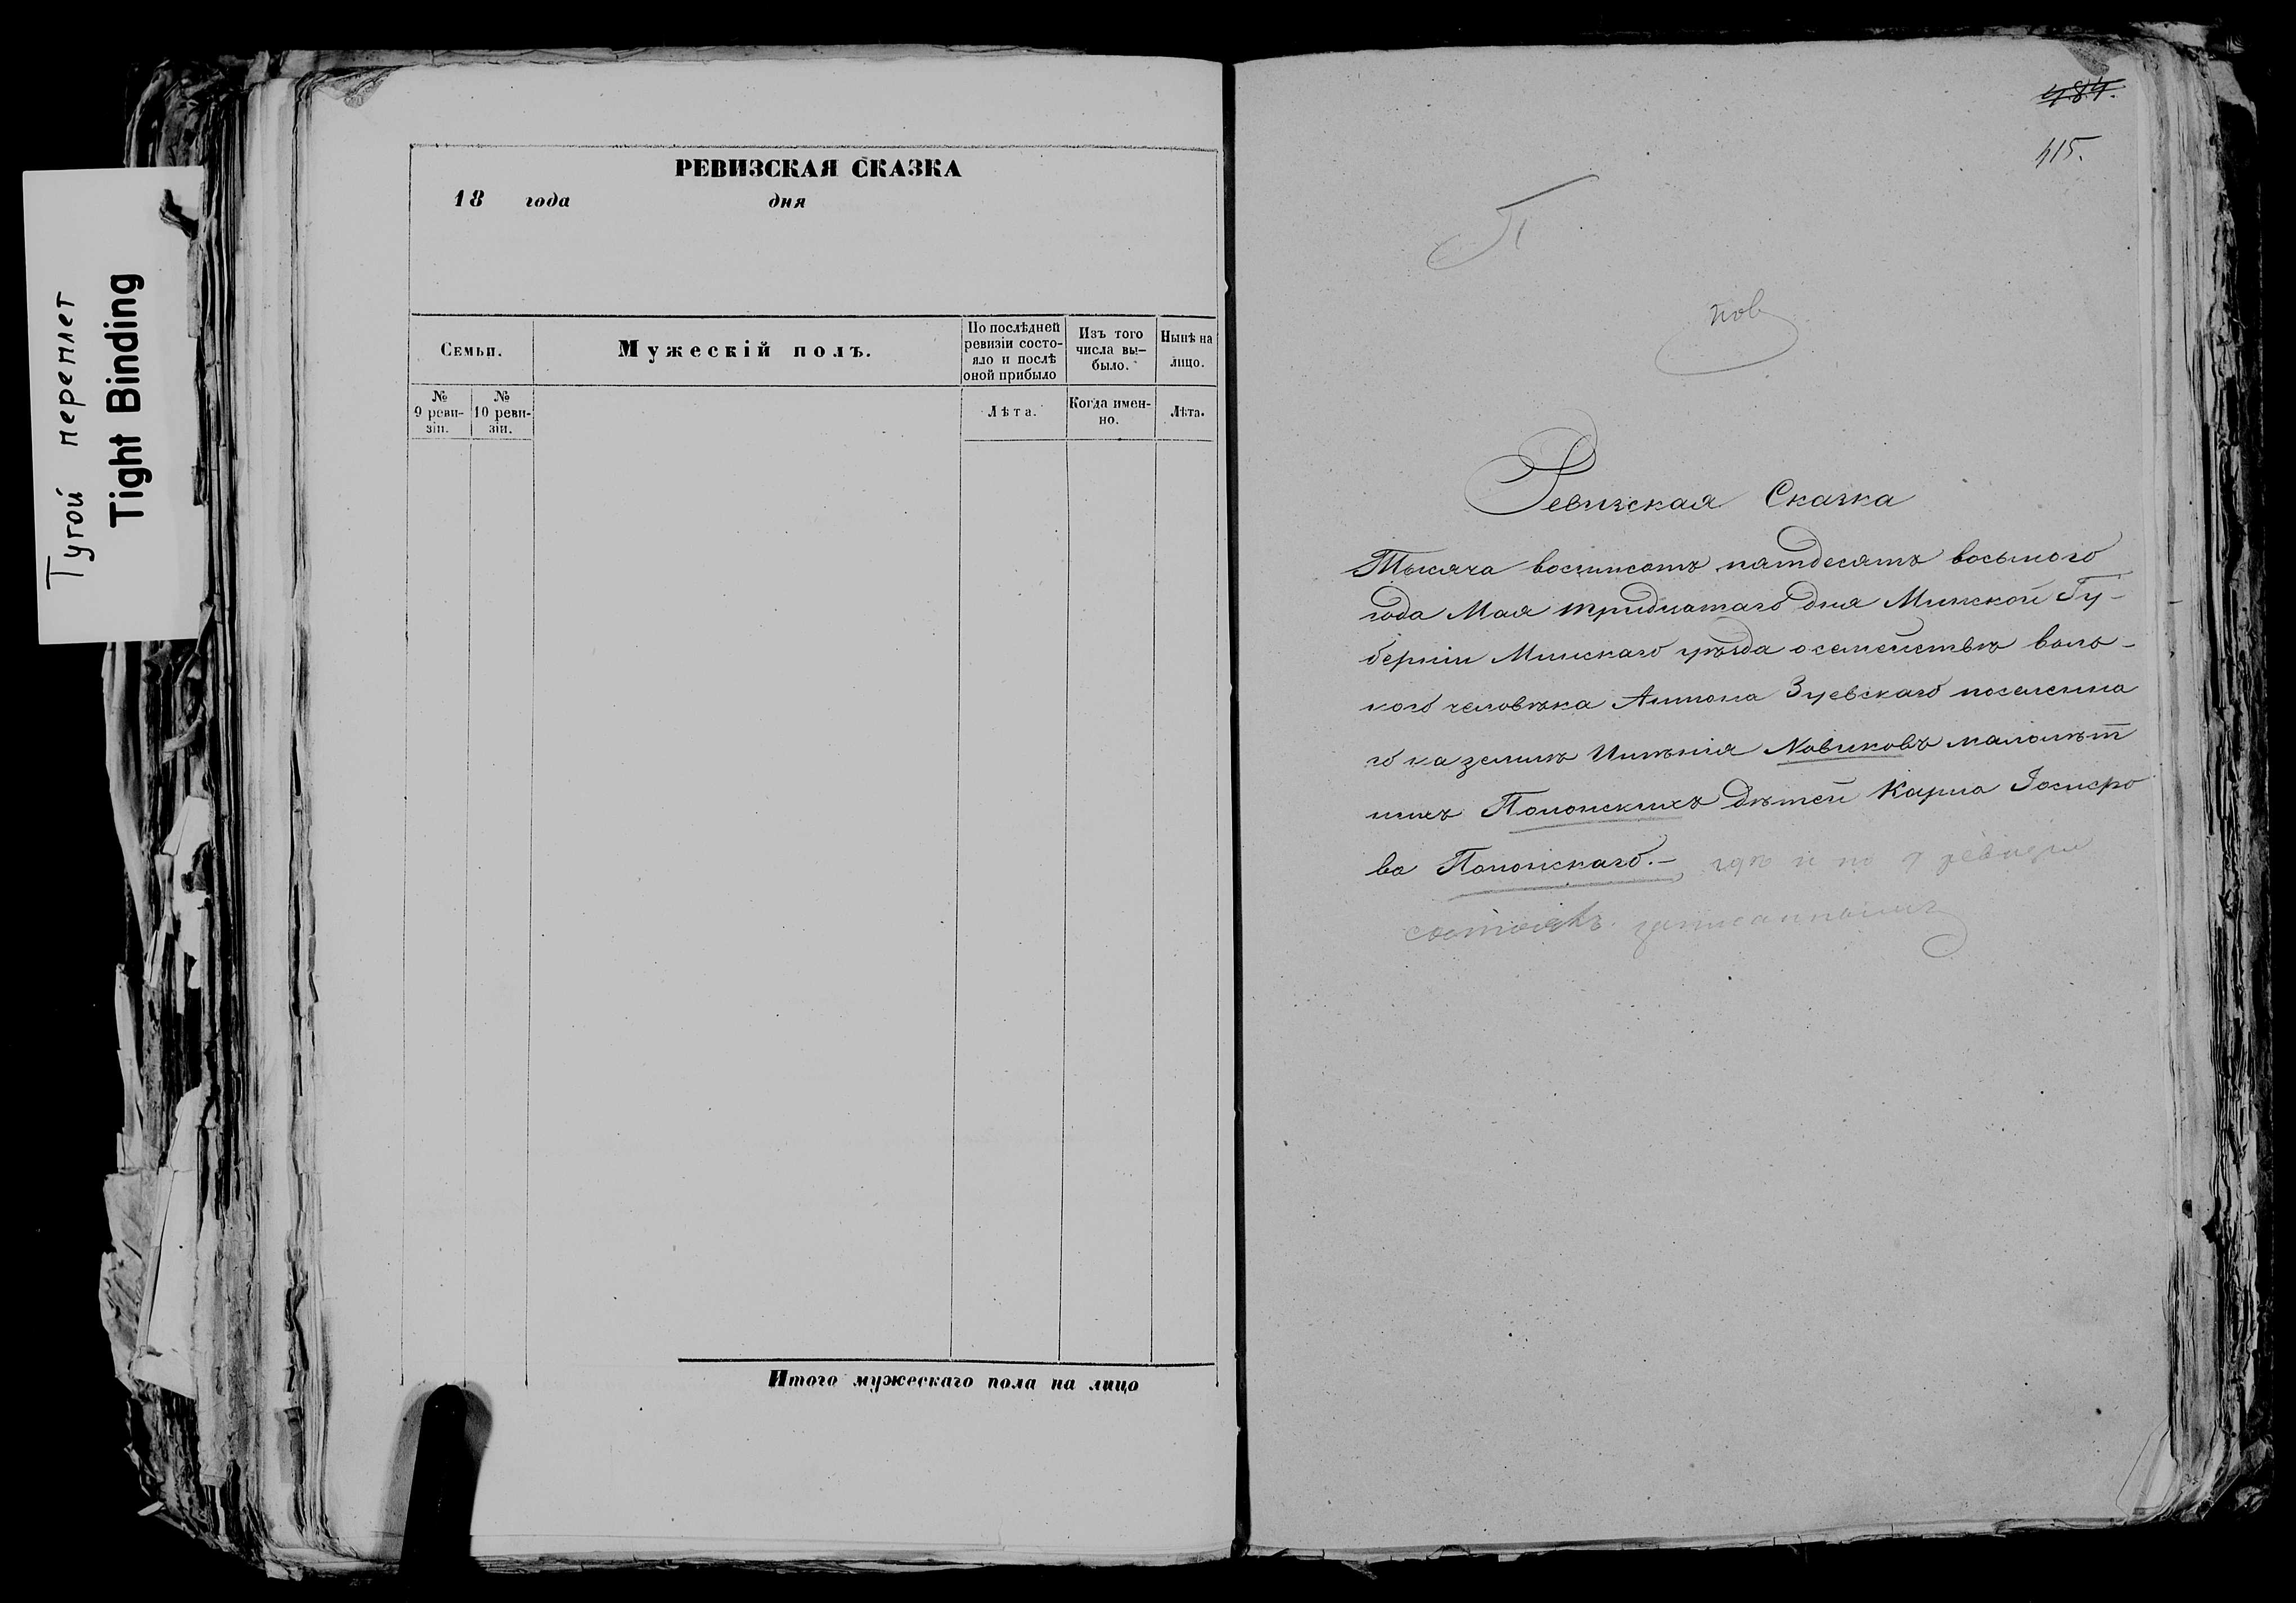 Тугой переплет
Tight Binding
РЕВИЗСКАЯ СКАЗКА
18 года дня
Семьи.
Мужескій полъ.
По послѣдней ревизіи состояло и послѣ оной прибыло
Изъ того числа выбыло.
Нынѣ на лицо.
№ 9 ревизіи.
№ 10 ревизіи.
Лѣта.
Когда именно.
Лѣта.
Итого мужескаго пола на лицо
484.
415.
П
нов
Ревизская Сказка
Тысяча восемисотъ пятдесятъ восьмого
года Мая тридцатаго дня Минской Гу-
берніи Минскаго уѣзда о семействѣ воль-
ного человѣка Антона Зуевскаго поселенна
го на землѣ Имѣнія Новиковъ малолѣт
нихъ Полонскихъ дѣтей Карла Іосифо
ва Полонскаго.- гдѣ и по 9 ревизіи
состоялъ записаннымъ